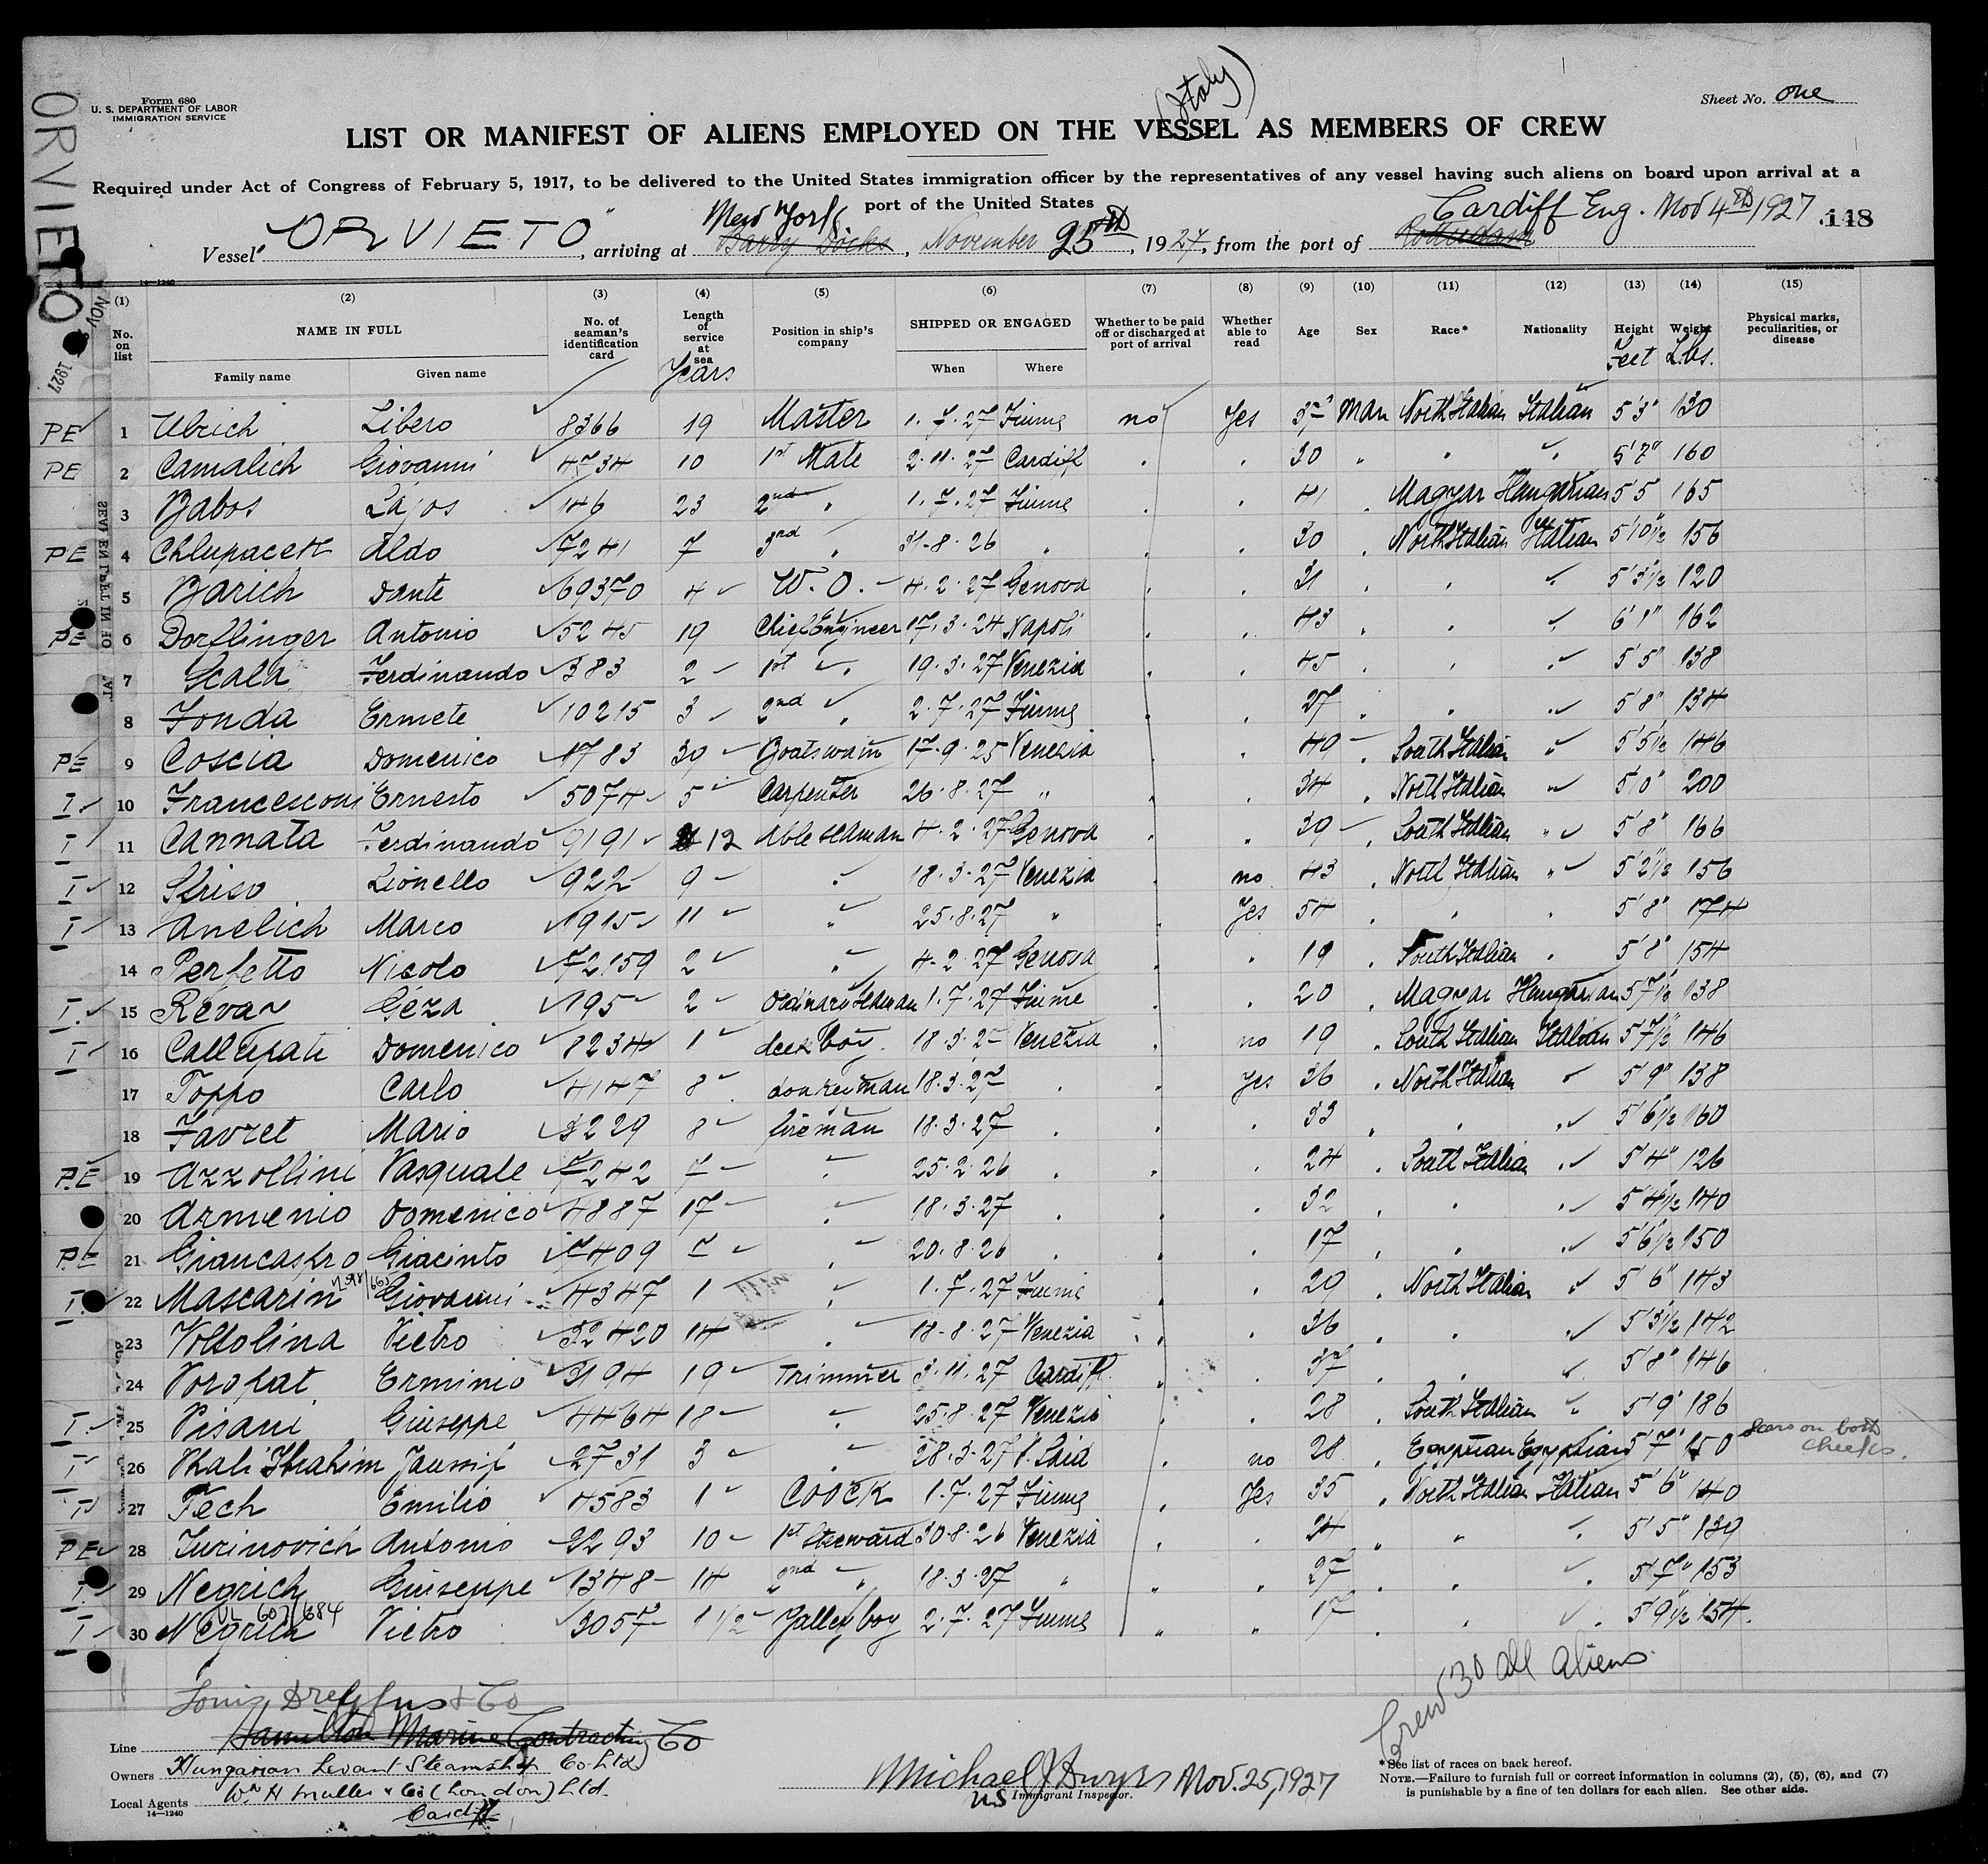 Form 680
U. S. DEPARTMENT OF LABOR
IMMIGRATION SERVICE
ORVIETO
(Italy)
Sheet No. one
LIST OR MANIFEST OF ALIENS EMPLOYED ON THE VESSEL AS MEMBERS OF CREW
Required under Act of Congress of February 5, 1917, to be delivered to the United States immigration officer by the representatives of any vessel having such aliens on board upon arrival at a
port of the United States
New York Cardiff Eng. Nov 4th 1927 148
Vessel "ORVIETO", arriving at Barry Docks, November 25th, 1927, from the port of Rotterdam
14—1240
(1) (2) (3) (4) (5) (6) (7) (8) (9) (10) (11) (12) (13) (14) (15)
No. on list NAME IN FULL Family name Given name No. of seaman's identification card Length of service at sea Years Position in ship's company SHIPPED OR ENGAGED When Where Whether to be paid off or discharged at port of arrival Whether able to read Age Sex Race* Nationality Height Feet Weight Lbs. Physical marks, peculiarities, or disease
NOV 1927
PE 1 Ulrich Libero 8366 19 Master 1.7.27 Fiume no Yes 37 Man North Italian Italian 5'3" 130
PE 2 Camalich Giovanni 4734 10 1st Mate 2.11.27 Cardiff 30 " 5'7" 160
3 Babos Lajos 146 23 2nd " 1.7.27 Fiume 41 Magyar Hungarian 5'5 165
PE 4 Chlupacek Aldo 7241 7 3rd " 31-8-26 " 30 North Italian Italian 5'10"1/2 156
5 Barich Dante 69370 4 W.O. 4.2.27 Genova 31 5'3"1/2 120
PE 6 Dorflinger Antonio 5245 19 Chief Engineer 17.3.24 Napoli 43 6'1" 162
7 Scala Ferdinando 383 2 1st " 19.3.27 Venezia 45 5'5" 138
8 Fonda Ermete 10215 3 2nd " 2.7.27 Fiume 27 5'8" 134
PE 9 Coscia Domenico 1783 30 Boatswain 17.9.25 Venezia 40 South Italian " 5'5 1/2 146
I 10 Francesconi Ernesto 5074 5 Carpenter 26.8.27 " 34 North Italian " 5'0" 200
I 11 Cannata Ferdinando 9191 12 Able seaman 4.2.27 Genova 39 South Italian " 5'8" 166
I 12 Lionello 922 9 " 18.3.27 Venezia no 43 North Italian " 5'2"1/2 156
I 13 Anelich Marco 1915 11 " 25.8.27 " Yes 54 5'8" 174
14 Perfetto Nicolo 72159 2 " 4-2-27 Genova 19 South Italian 5'8" 154
I 15 Révay Géza 195 2 Ordinary seaman 1.7.27 Fiume 20 Magyar Hungarian 5'7"1/2 138
I 16 Domenico 8234 1 deck boy 18.3.2 Venezia no 19 South Italian Italian 5'7"1/2 146
17 Toppo Carlo 4147 8 donkeyman 18.3.27 Yes 36 North Italian 5'9" 138
18 Favret Mario 3229 8 fireman 18.3.27 33 5'6"1/2 160
PE 19 Azzollini Pasquale 7242 7 " 25.2.26 24 South Italian " 5'4" 126
20 Armenio Domenico 4887 17 " 18.3.27 32 5'4"1/2 140
PE 21 Giancaspro Giacinto 7409 7 " 20.8.26 17 5'6"1/2 150
I 22 Mascarin Giovanni 4347 1 " 1.7.27 Fiume 20 North Italian " 5'6" 143
23 Voltolina Pietro 32420 14 " 18-8-27 Venezia 36 5'3"1/2 142
24 Poropat Erminio 3194 19 Trimmer 3.11.27 Cardiff 37 5'8" 146
I 25 Pisani Giuseppe 4464 18 " 25.8.27 Venezia 28 South Italian " 5'9" 186
I 26 Ibrahim 2731 3 " 28.3.27 P. Said no 28 Egyptian Egyptian 5'7" 150 Scars on both cheeks.
I 27 Tech Emilio 4583 1 Coock 1.7.27 Fiume Yes 35 North Italian Italian 5'6" 140
PE 28 Turinovich Antonio 2293 10 1st Steward 30.8.26 Venezia 24 " 5'5" 139
I 29 Negrich Giuseppe 1348 14 2nd " 18.3.27 " 27 5'7" 153
I 30 Negrich Pietro 3057 1 1/2 Galley boy 2.7.27 Fiume 17 5'9"1/2 154
Crew 30 all aliens
Louis Dreyfus & Co
Line Hamilton Marine Contracting Co
Owners Hungarian Levant Steamship Co Ltd
Local Agents Wm H Muller & Co (London) Ltd.
Cardiff
14—1240
Michael J Dwyer Nov. 25, 1927
US Immigrant Inspector.
*See list of races on back hereof.
NOTE.—Failure to furnish full or correct information in columns (2), (5), (6), and (7)
is punishable by a fine of ten dollars for each alien. See other side.